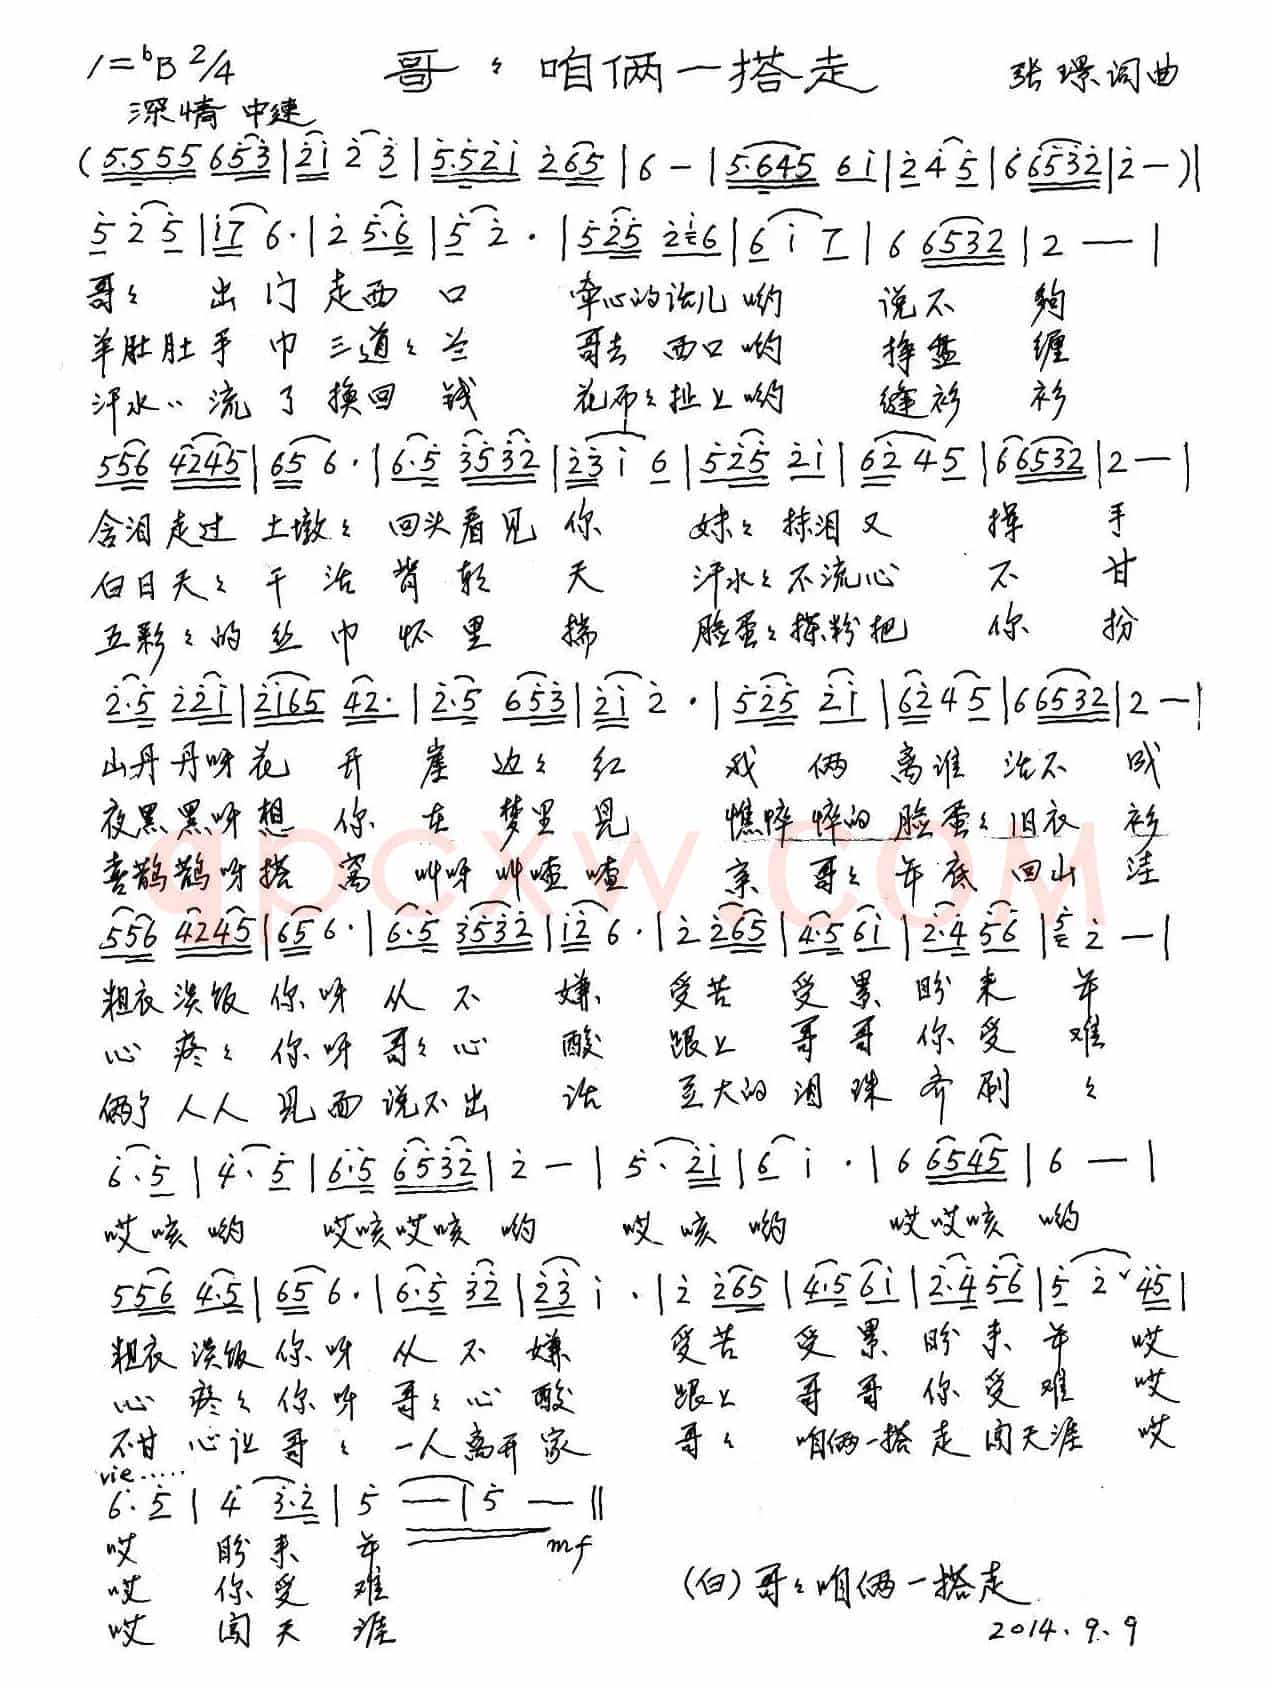 1=♭B 2/4 哥〻咱俩一搭走 张璟词曲
深情 中速
(5.555 653|21 2 3|5.521 265|6 -|5.645 61|2 4 5|6 6532|2 -)|
5 2 5|17 6.|2 5.6|5 2.|525 2 1 6|6 1 7|6 6532|2 -|
哥〻 出门走西口 牵心的话儿哟 说不够
羊肚肚手巾三道〻兰 哥去西口哟 挣盘缠
汗水〻流了换回钱 花布〻扯上哟 缝衫衫
556 4245|65 6.|6.5 3532|23 1 6|525 21|62 45|6 6532|2 -|
含泪走过土墩〻回头看见你 妹〻抹泪又挥手
白日天〻干活背朝天 汗水〻不流心不甘
五彩〻的丝巾怀里揣 脸蛋〻搽粉把你扮
2.5 221|2165 42.|2.5 653|21 2.|525 21|62 45|6 6532|2 -|
山丹丹呀花开崖边〻红 我俩离谁活不成
夜黑黑呀想你在梦里见 憔悴悴的脸蛋〻旧衣衫
喜鹊鹊呀搭窝叫呀叫喳喳 亲哥〻年底回山洼
556 4245|65 6.|6.5 3532|12 6.|2 265|4.5 61|2.4 56|5 2 -|
粗衣淡饭你呀从不嫌 受苦受累盼来年
心疼〻你呀哥〻心酸 跟上哥哥你受难
俩个人人见面说不出话 豆大的泪珠齐刷〻
6.5|4.5|6.5 6532|2 -|5. 21|6 1.|6 6545|6 -|
哎咳哟 哎咳哎咳哟 哎咳哟 哎哎咳哟
556 4.5|65 6.|6.5 32|23 1.|2 265|4.5 61|2.4 56|5 2 ˅ 45|
粗衣淡饭你呀从不嫌 受苦受累盼来年 哎
心疼〻你呀哥〻心酸 跟上哥哥你受难 哎
不甘心让哥〻一人离开家 哥〻咱俩一搭走闯天涯 哎
vie.....
6.5|4 3.2|5 -|5 -‖
哎 盼来年 mf
哎 你受难 (白)哥〻咱俩一搭走
哎 闯天涯 2014.9.9
qpcxw.com